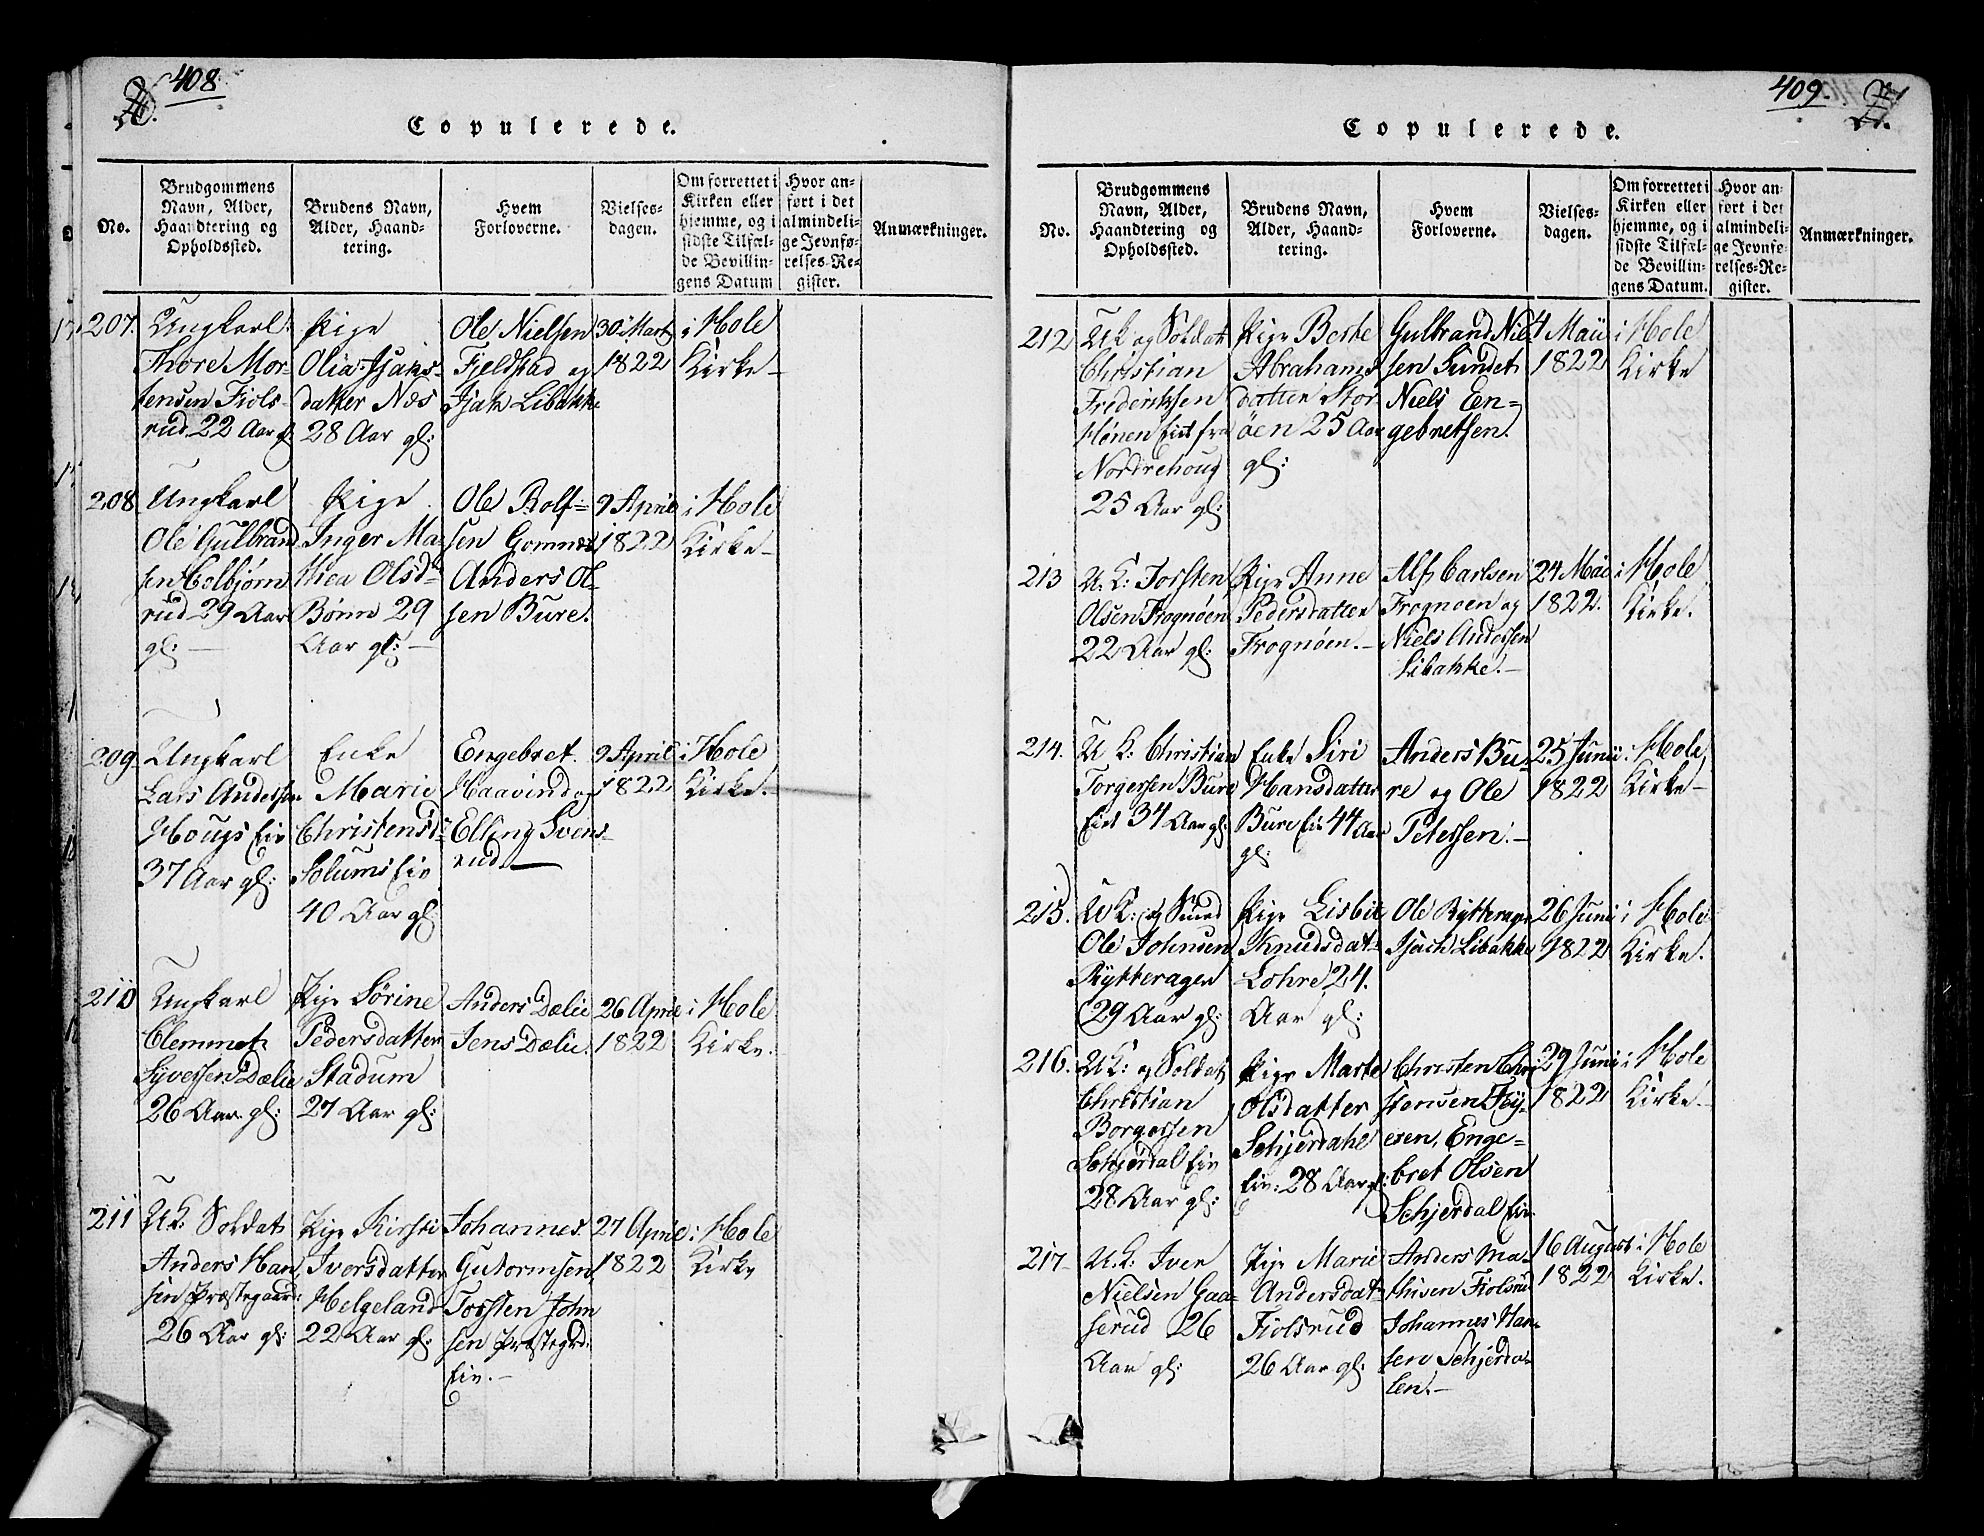 408.
26.
Copulerede.
No.
Brudgommens
Navn, Alder,
Haandtering og
Opholdssted.
Brudens Navn,
Alder, Haand-
tering.
Hvem
Forloverne.
Vielses-
dagen.
Om forrettet i
Kirken eller
hjemme, og i
sidste Tilfæl-
de Bevillin-
gens Datum
Hvor an-
ført i det
almindeli-
ge Jevnfø-
relses-Re-
gister.
Anmærkninger.
207.
Ungkarl
Thore Mor-
tensen Fiols-
rud 22 Aar gl:
Pige
Olia Isaks-
datter Næs
28 Aar gl:
Ole Nielsen
Fjeldstad og
Isak Libakke
30 Marts
1822
i Hole
Kirke
208
Ungkarl
Ole Gulbrand
sen Colbjørn
rud 29 Aar
gl:
Pige
Inger Ma-
thea Olsd:
Bønn 29
Aar gl:
Ole Rolf-
sen Gomnes
Anders Ol-
sen Bure.
9 April
1822
i Hole
Kirke
209.
Ungkarl
Lars Andersen
Hougs Eie
37 Aar gl:
Enke
Marie
Christensd:
Solums Eie
40 Aar gl:
Engebret
Haavind og
Elling Svens-
rud
9 April
1822
i Hole
Kirke.
210
Ungkarl
Clemmet
Syversen Dælie
26 Aar gl:
Pige Sørine
Pedersdatter
Stadum
27 Aar gl:
Anders Dælie
Jens Dælie.
26 April
1822
i Hole
Kirke.
211
U K: Soldat
Anders Han
sen Præstegaard:
26 Aar gl:
Pige Kirsti
Iversdatter
Helgeland
22 Aar gl:
Johannes
Gutormsen
Torsten John
sen Præstegrd:
Eie.
27 April
1822
i Hole
Kirke
409.
27.
Copulerede.
No.
Brudgommens
Navn, Alder,
Haandtering og
Opholdssted.
Brudens Navn,
Alder, Haand-
tering.
Hvem
Forloverne.
Vielses-
dagen.
Om forrettet i
Kirken eller
hjemme, og i
sidste Tilfæl-
de Bevillin-
gens Datum.
Hvor an-
ført i det
almindeli-
ge Jevnfø-
relses-Re-
gister.
Anmærkninger.
212
UK og Soldat
Christian
Frederiksen
Hønen Eiet fra
Nordrehoug
25 Aar gl:
Pige Berte
Abrahams
datter Stor
øen 25 Aar
gl:
Gulbrand Niel
sen Sundet
Niels En-
gebretsen.
4 Maii
1822
i Hole
Kirke
213
U. K: Torsten
Olsen Frognøen
22 Aar gl:
Pige Anne
Pedersdatter
Frognøen.
Alf Carlsen
Frognøen og
Niels Andersen
Libakke.
24 Mai
1822.
i Hole
Kirke.
214.
U K: Christian
Torgersen Bure
Eiet 34 Aar gl:
Enke Siri
Hansdatter
Bure Eie 44 Aar
gl:
Anders Bu-
re og Ole
Petersen.
25 Junii
1822
i Hole
Kirke
215.
U K: og Smed
Ole Johnsen
Rytteragen
29 Aar gl:
Pige Lisbet
Knudsdat-
Lohre 24.
Aar gl:
Ole Rytterager
Isach Libakke
26 Juni
1822
i Hole
Kirke.
216.
UK: og Soldat
Christian
Borgersen
Schjerdal Eie
28 Aar gl:
Pige Marte
Olsdatter
Schjerdahl
Eie: 28 Aar gl:
Christen Chri
stensen Fey-
eren, Enge-
bret Olsen
Schjerdal Eie.
29 Juni
1822
i Hole
Kirke.
217
U. K: Iver
Nielsen Gaa-
serud 26
Aar gl:
Pige Marie
Andersdat-
Fiolsrud
26 Aar gl:
Anders Ma-
thisen Fiolsrud
Johannes Han-
sen Schjerda-
len.
16 August
1822
i Hole
Kirke.